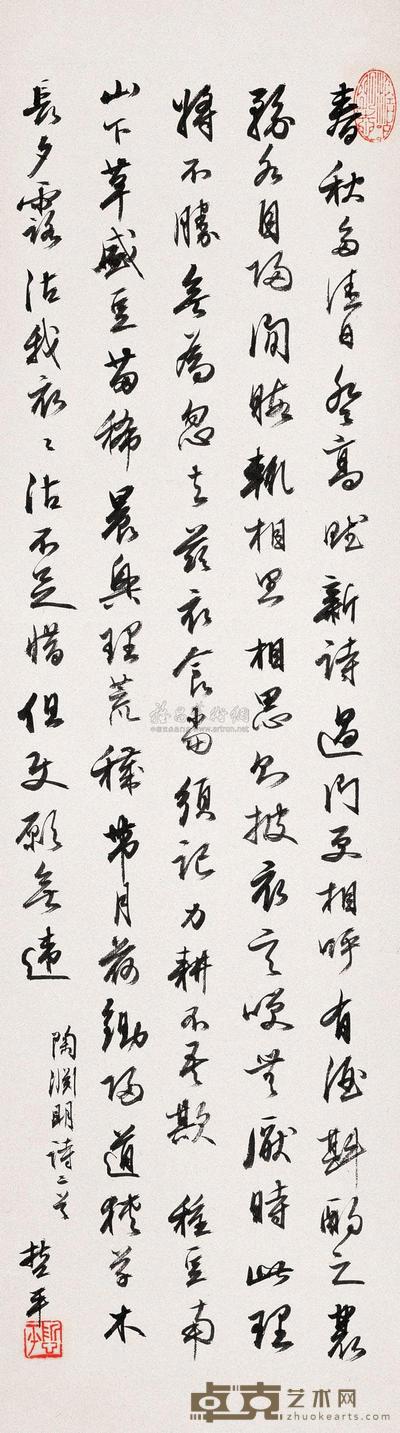 春秋多佳日登高賦新詩過門更相呼有酒斟酌之農
務各自歸閒暇輒相思相思則披衣言笑無厭時此理
將不勝無為忽去茲衣食當須記力耕不吾欺 種豆南
山下草盛豆苗稀晨興理荒穢帶月荷鋤歸道狹草木
長夕露沾我衣〻沾不足惜但使願無違
陶淵明詩二首
哲平
卓克艺术网
zhuokearts.com